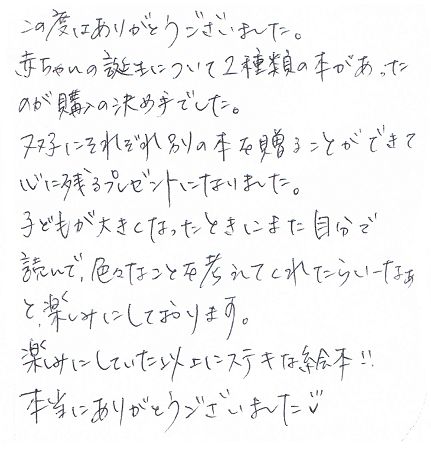 この度はありがとうございました。
赤ちゃんの誕生について2種類の本があった
のが購入の決め手でした。
双子にそれぞれ別の本を贈ることができて
心に残るプレゼントになりました。
子どもが大きくなったときにまた自分で
読んで、色々なことを考えてくれたらいーなぁ
と、楽しみにしております。
楽しみにしていた以上にステキな絵本!!
本当にありがとうございました♡